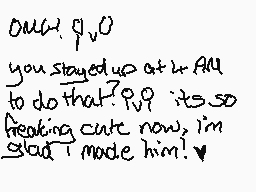 OMG! q_v_O
you stayed up at 4 AM
to do that? q_v_q its so
freaking cute now, i'm
glad i made him! ♥